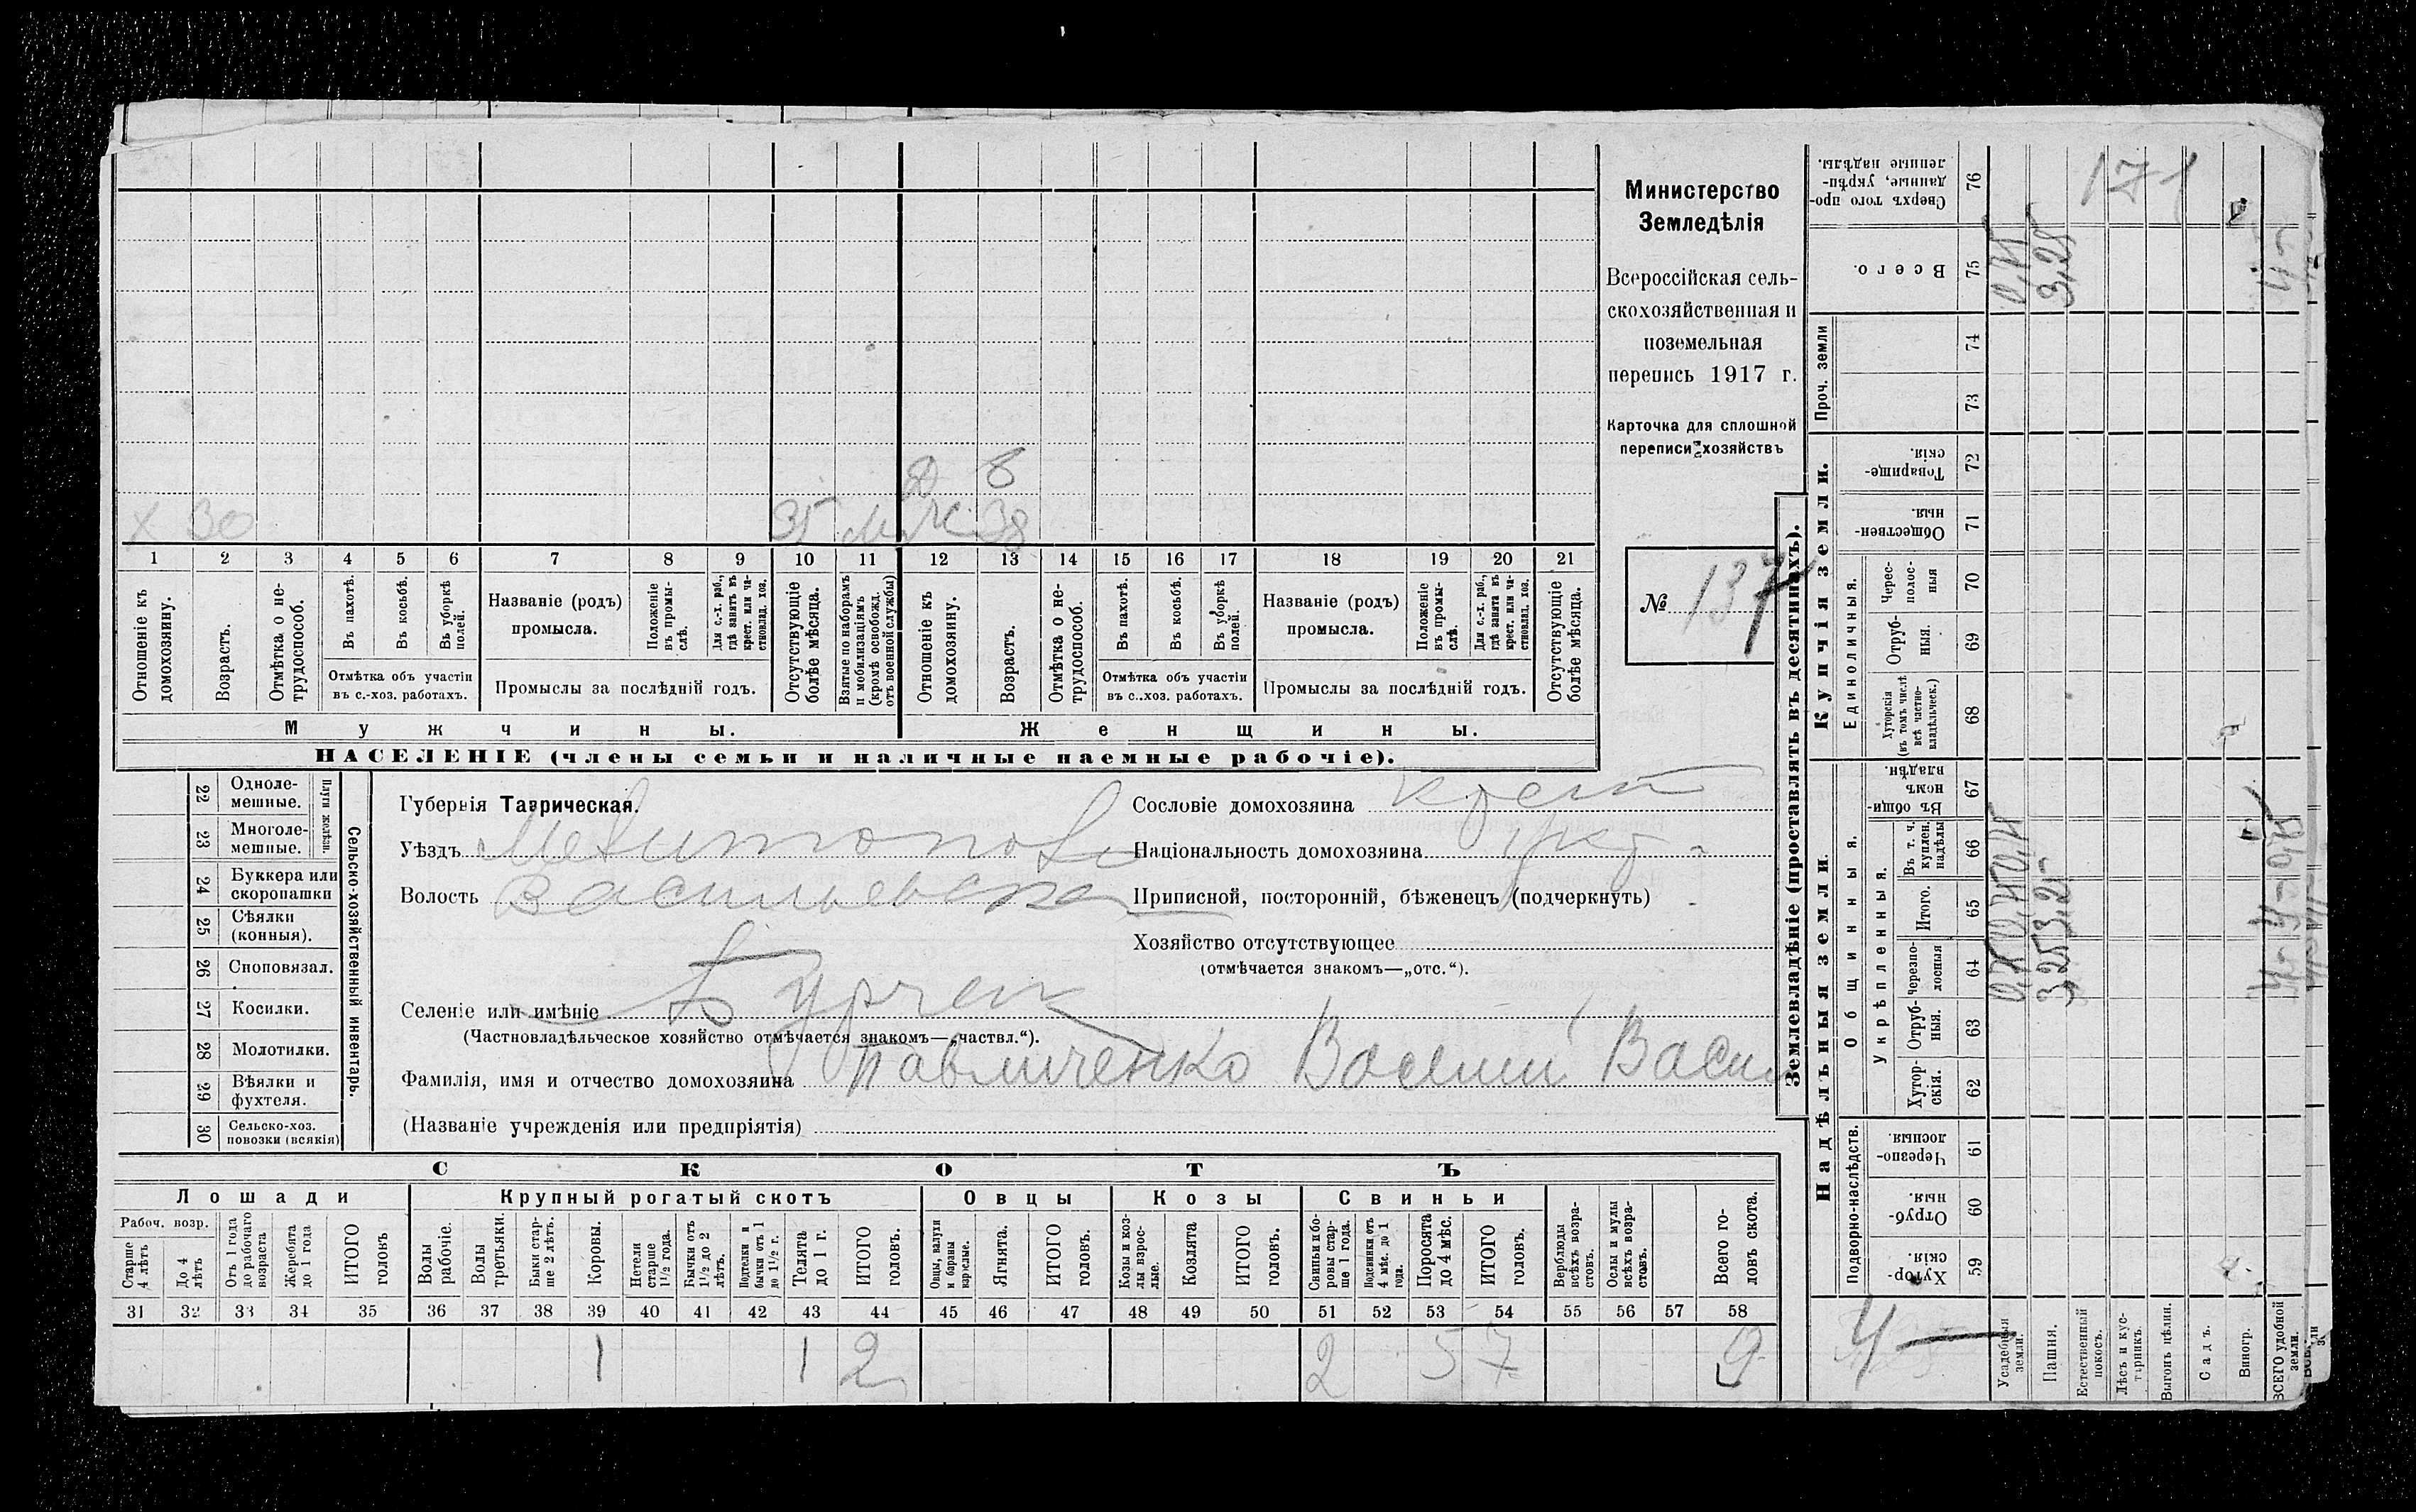 Министерство
Земледѣлія
Всероссійская сель-
скохозяйственная и
поземельная
перепись 1917 г.
Карточка для сплошной
переписи хозяйствъ
№ 137
Д 8
Х 30 35 Ж 38
1 2 3 4 5 6 7 8 9 10 11 12 13 14 15 16 17 18 19 20 21
Отношеніе къ домохозяину.
Возрастъ.
Отмѣтка о не-трудоспособ.
Въ пахотѣ.
Въ косьбѣ.
Въ уборкѣ полей.
Отмѣтка объ участіи
въ с.-хоз. работахъ.
Названіе (родъ)
промысла.
Положеніе въ промы-слѣ.
Для с.-х. раб., гдѣ занятъ въ крест. или ча-стновлад. хоз.
Промыслы за послѣдній годъ.
Отсутствующіе болѣе мѣсяца.
Взятые по наборамъ и мобилизаціямъ (кромѣ освобожд. отъ военной службы)
Отношеніе къ домохозяину.
Возрастъ.
Отмѣтка о не-трудоспособ.
Въ пахотѣ.
Въ косьбѣ.
Въ уборкѣ полей.
Отмѣтка объ участіи
въ с..хоз. работахъ.
Названіе (родъ)
промысла.
Положеніе въ промы-слѣ.
Для с.-х. раб., гдѣ занята въ крест. или ча-стновлад. хоз.
Промыслы за послѣдній годъ.
Отсутствующіе болѣе мѣсяца.
Мужчины.
Женщины.
НАСЕЛЕНІЕ (члены семьи и наличные наемные рабочіе).
22 Одноле-мешные.
23 Многоле-мешные.
Плуги желѣзн.
24 Буккера или скоропашки
25 Сѣялки (конныя).
26 Сноповязал.
27 Косилки.
28 Молотилки.
29 Вѣялки и фухтеля.
30 Сельско-хоз. повозки (всякія)
Сельско-хозяйственный инвентарь.
Губернія Таврическая.
Уѣздъ Мелитопол
Волость Васильевска
Селеніе или имѣніе Бурчек
(Частновладѣльческое хозяйство отмѣчается знакомъ—„частвл.“).
Фамилія, имя и отчество домохозяина Павличенко Василий Васил
(Названіе учрежденія или предпріятія)
Сословіе домохозяина крест
Національность домохозяина укр
Приписной, посторонній, бѣженецъ (подчеркнуть)
Хозяйство отсутствующее
(отмѣчается знакомъ—„отс.“).
СКОТЪ
Лошади
Крупный рогатый скотъ
Овцы
Козы
Свиньи
Рабоч. возр.
Старше 4 лѣтъ
До 4 лѣтъ
Отъ 1 года до рабочаго возраста
Жеребята до 1 года
ИТОГО головъ
Волы рабочіе.
Волы третьяки.
Быки стар-ше 2 лѣтъ.
Коровы.
Нетели старше 1½ года.
Бычки отъ 1½ до 2 лѣтъ.
Подтелки и бычки отъ 1 до 1½ г.
Телята до 1 г.
ИТОГО головъ.
Овцы, валухи и бараны взрослые.
Ягнята.
ИТОГО головъ.
Козы и коз-лы взрос-лые.
Козлята
ИТОГО головъ.
Свиньи и бо-ровы стар-ше 1 года.
Подсвинки отъ 4 мѣс. до 1 года.
Поросята до 4 мѣс.
ИТОГО головъ.
Верблюды всѣхъ возра-стовъ.
Ослы и мулы всѣхъ возра-стовъ.
Всего го-ловъ скота.
31 32 33 34 35 36 37 38 39 40 41 42 43 44 45 46 47 48 49 50 51 52 53 54 55 56 57 58
1 1 2 2 5 7 9
Землевладѣніе (проставлять въ десятинахъ).
Купчія земли.
Надѣльныя земли.
Сверхъ того про-данные, укрѣп-ленные надѣлы.
76
171
Всего.
75
0,75
3,25
Проч. земли
74
73
Товарище-скія.
72
Обществен-ныя.
71
Единоличныя.
Черес-полос-ныя
70
Отруб-ныя.
69
Хуторскія (въ томъ числѣ всѣ частно-владѣльческ.)
68
Общинныя.
Въ общи-номъ владѣн.
67
Укрѣпленныя.
Въ т. ч. куплен. надѣлы
66
Итого.
65
Черезпо-лосныя
64
Отруб-ныя.
63
Хутор-скія.
62
0,75 0,75
3,25 3,25
Подворно-наслѣдств.
Черезпо-лосныя.
61
Отруб-ныя.
60
Хутор-скія.
59
4
Усадебныя земли.
Пашня.
Естественный покосъ.
Лѣсъ и кус-тарникъ.
Выгонъ цѣлин.
Садъ.
Виногр.
ВСЕГО удобной земли.